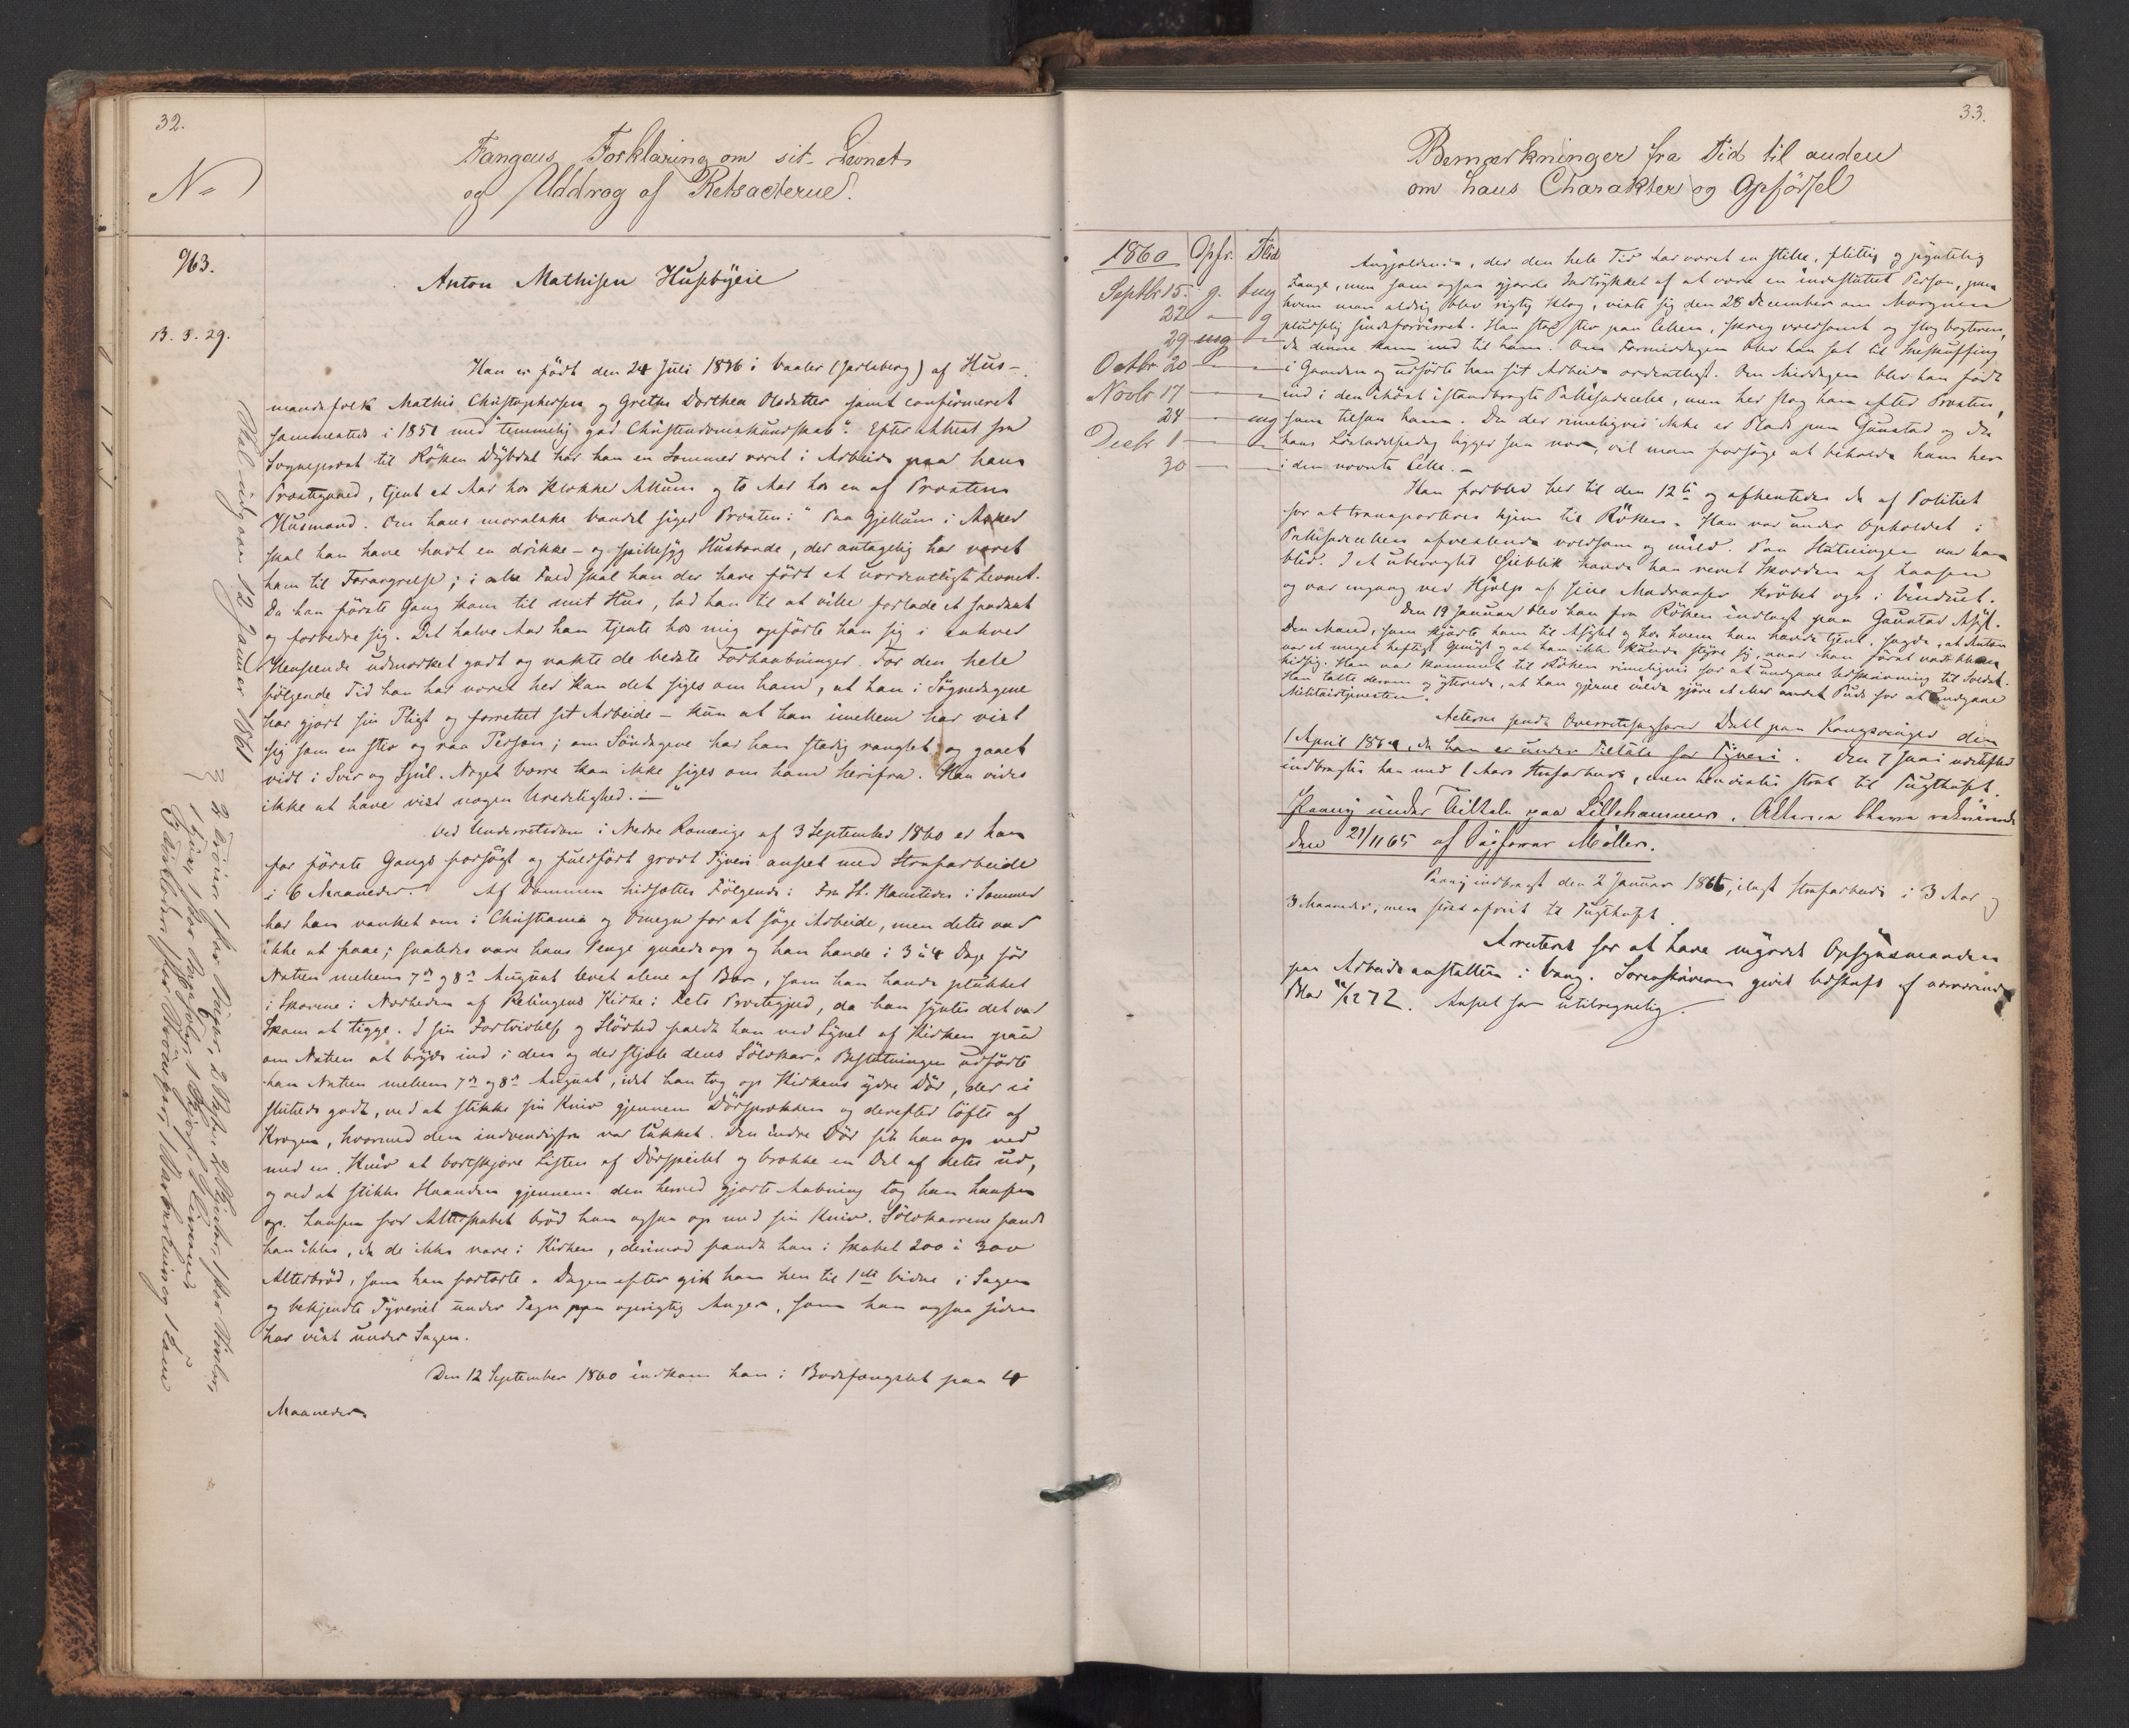 32.
No
Fangens Forklaring om sit Levnet
og Uddrag af Retsacterne.
963.
Anton Mathisen Husebyeie
B. 3. 29.
Han er født den 24 Juli 1836 i Vaaler (Jarlsberg) af Hus-
mandsfolk Mathis Christophersen og Grethe Dorthea Olsdatter samt confirmeret
sammesteds i 1851 med "temmelig god Christendomskundskab". Efter Attest fra
Sogneprest til Röken Dybdal har han en Sommer været i Arbeide paa hans
Prestegaard, tjent et Aar hos Klokker Allum og to Aar hos en af Prostens
Husmænd. Om hans moralske Vandel siger Prosten: "Paa Gjellum i Asker
skal han have havt en drikke- og spillesyg Husbonde, der antagelig har været
ham til Forargelse; i alle Fald skal han der have ført et uordentligt Levnet.
Da han første Gang kom til mit Hus, lod han til at ville forlade et saadant
og forbedre sig. Det halve Aar han tjente hos mig opførte han sig i enhver
Henseende udmærket godt og vakte de bedste Forhaabninger. For den hele
følgende Tid han har været her kan det siges om ham, at han i Søgnedagene
har gjort sin Pligt og forrettet sit Arbeide - kun at han imellem har vist
sig som en stiv og raa Person; om Søndagene har han stadig ranglet og gaaet
vidt i Svir og Sjul. Noget værre kan ikke siges om ham herifra. Han vides
ikke at have vist nogen Uredelighed. —"
Ved Underretsdom i Nedre Romerige af 3 September 1860 er han
for første Gangs forsøgt og fuldført grovt Tyveri anseet med Strafarbeide
i 6 Maaneder. Af Dommen hidsættes Følgende: Fra St. Hanstider i Sommer
har han vanket om i Christiania og Omegn for at søge Arbeide, men dette var
ikke at faae; saaledes vare hans Penge gaaede op og han havde i 3 à 4 Dage før
Natten mellem 7de og 8de August levet alene af Bær, som han havde plukket
i Skovene i Nærheden af Relingens Kirke i Fets Prestegjeld, da han syntes det var
Skam at tigge. I sin Fortvivlelse og Sløvhed faldt han ved Synet af Kirken paa
om Natten at bryde ind i den og der stjæle dens Sølvkar. Beslutningen udførte
han Natten mellem 7de og 8de August, idet han tog op Kirkens ydre Dør, der ei
sluttede godt, ved at stikke sin Kniv gjennem Dørsprækken og derefter løfte af
Krogen, hvormed den indvendigfra var lukket. Den indre Dør fik han op ved
med en Kniv at bortskjære Listen af Dørspeilet og brække en Del af dette ud,
og ved at stikke Haanden gjennem den herved gjorte Aabning tog han Laasen
op. Laasen for Alterskabet brød han ogsaa op med sin Kniv. Sølvkarrene fandt
han ikke, da de ikke vare i Kirken, derimod fandt han i Skabet 200 à 300
Alterbrød, som han fortærte. Dagen efter gik han hen til 1ste Vidne i Sagen
og bekjendte Tyveriet under Tegn paa oprigtig Anger, som han ogsaa siden
har vist under Sagen.
Den 12 September 1860 indkom han i Bodsfængslet paa 4
Maaneder.
12 Januar 1861
33.
Bemærkninger fra Tid til anden
om hans Charakter og Opførsel
1860 Opfr. Flid
Septbr 15. g. tmg
22 — g
29 mg —
Octbr 20 — —
Novbr 17 — —
24 — mg
Decbr 1 — —
30 — —
Angjældende, der den hele Tid har været en stille, flittig og
Fange, men som ogsaa gjorde Indtrykket af at være en indesluttet Person, paa
hvem man aldrig blev rigtig klog, viste sig den 28 December om Morgenen
pludselig sindsforvirret. Han stod stiv paa Cellen, skreg voldsomt og slog Vogteren,
da denne kom ind til ham. Om Formiddagen blev han sat til Sneskuffing
i Gaarden og udførte han sit Arbeide ordentligt. Om Middagen blev han ført
ind i den istandbragte Pallisadecelle, men her slog han efter Prosten,
som tilsaa ham. Da der rimeligvis ikke er Plads paa Gaustad og da
hans Løsladelsesdag ligger saa nær, vil man forsøge at beholde ham her
i den nævnte Celle. —
Han forblev her til den 12te og afhentedes da af Politiet
for at transporteres hjem til Röken. Han var under Opholdet i
Pallisadecellen afvexlende voldsom og mild. Paa Slutningen var han
blid. I et ubevogtet Øieblik havde han revet Skodden af Laasen
og var engang ved Hjælp af sine Madrasser krøbet op i Vinduet.
Den 19 Januar blev han fra Röken indlagt paa Gaustad Asyl.
Den Mand, som kjørte ham til Asylet og hos hvem han havde tjent, sagde, at Anton
var et meget heftigt Gemyt og at han ikke kunde styre sig, naar han først var bleven
hidsig. Han var kommet til Röken rimeligvis for at undgaae Udskrivning til Soldat.
Han talte derom og yttrede, at han gjerne vilde gjøre et eller andet Puds for at undgaae
Militairtjenesten.
Acterne sendt Overretssagfører Dahl paa Kongsvinger den
1 April 1864, da han er under Tiltale for Tyveri. Den 7 Juni
indbragtes han med 1 Aars Strafarbeide, men henvistes strax til Tugthuset.
Paany under Tiltale paa Lillehammer. Akterne bleve rekvirerede
den 21/11 65 af Sagfører Møller.
Paany indbragt den 2 Januar 1866, ilagt Strafarbeide i 3 Aar og
3 Maaneder; men strax afvist til Tugthuset.
Arresteret for at have myrdet Opsynsmanden
paa Arbeidsanstalten i Vang. Sorenskriveren givet Udskrift af nærværende
Blad 11/12 72. Anseet som utilregnelig.